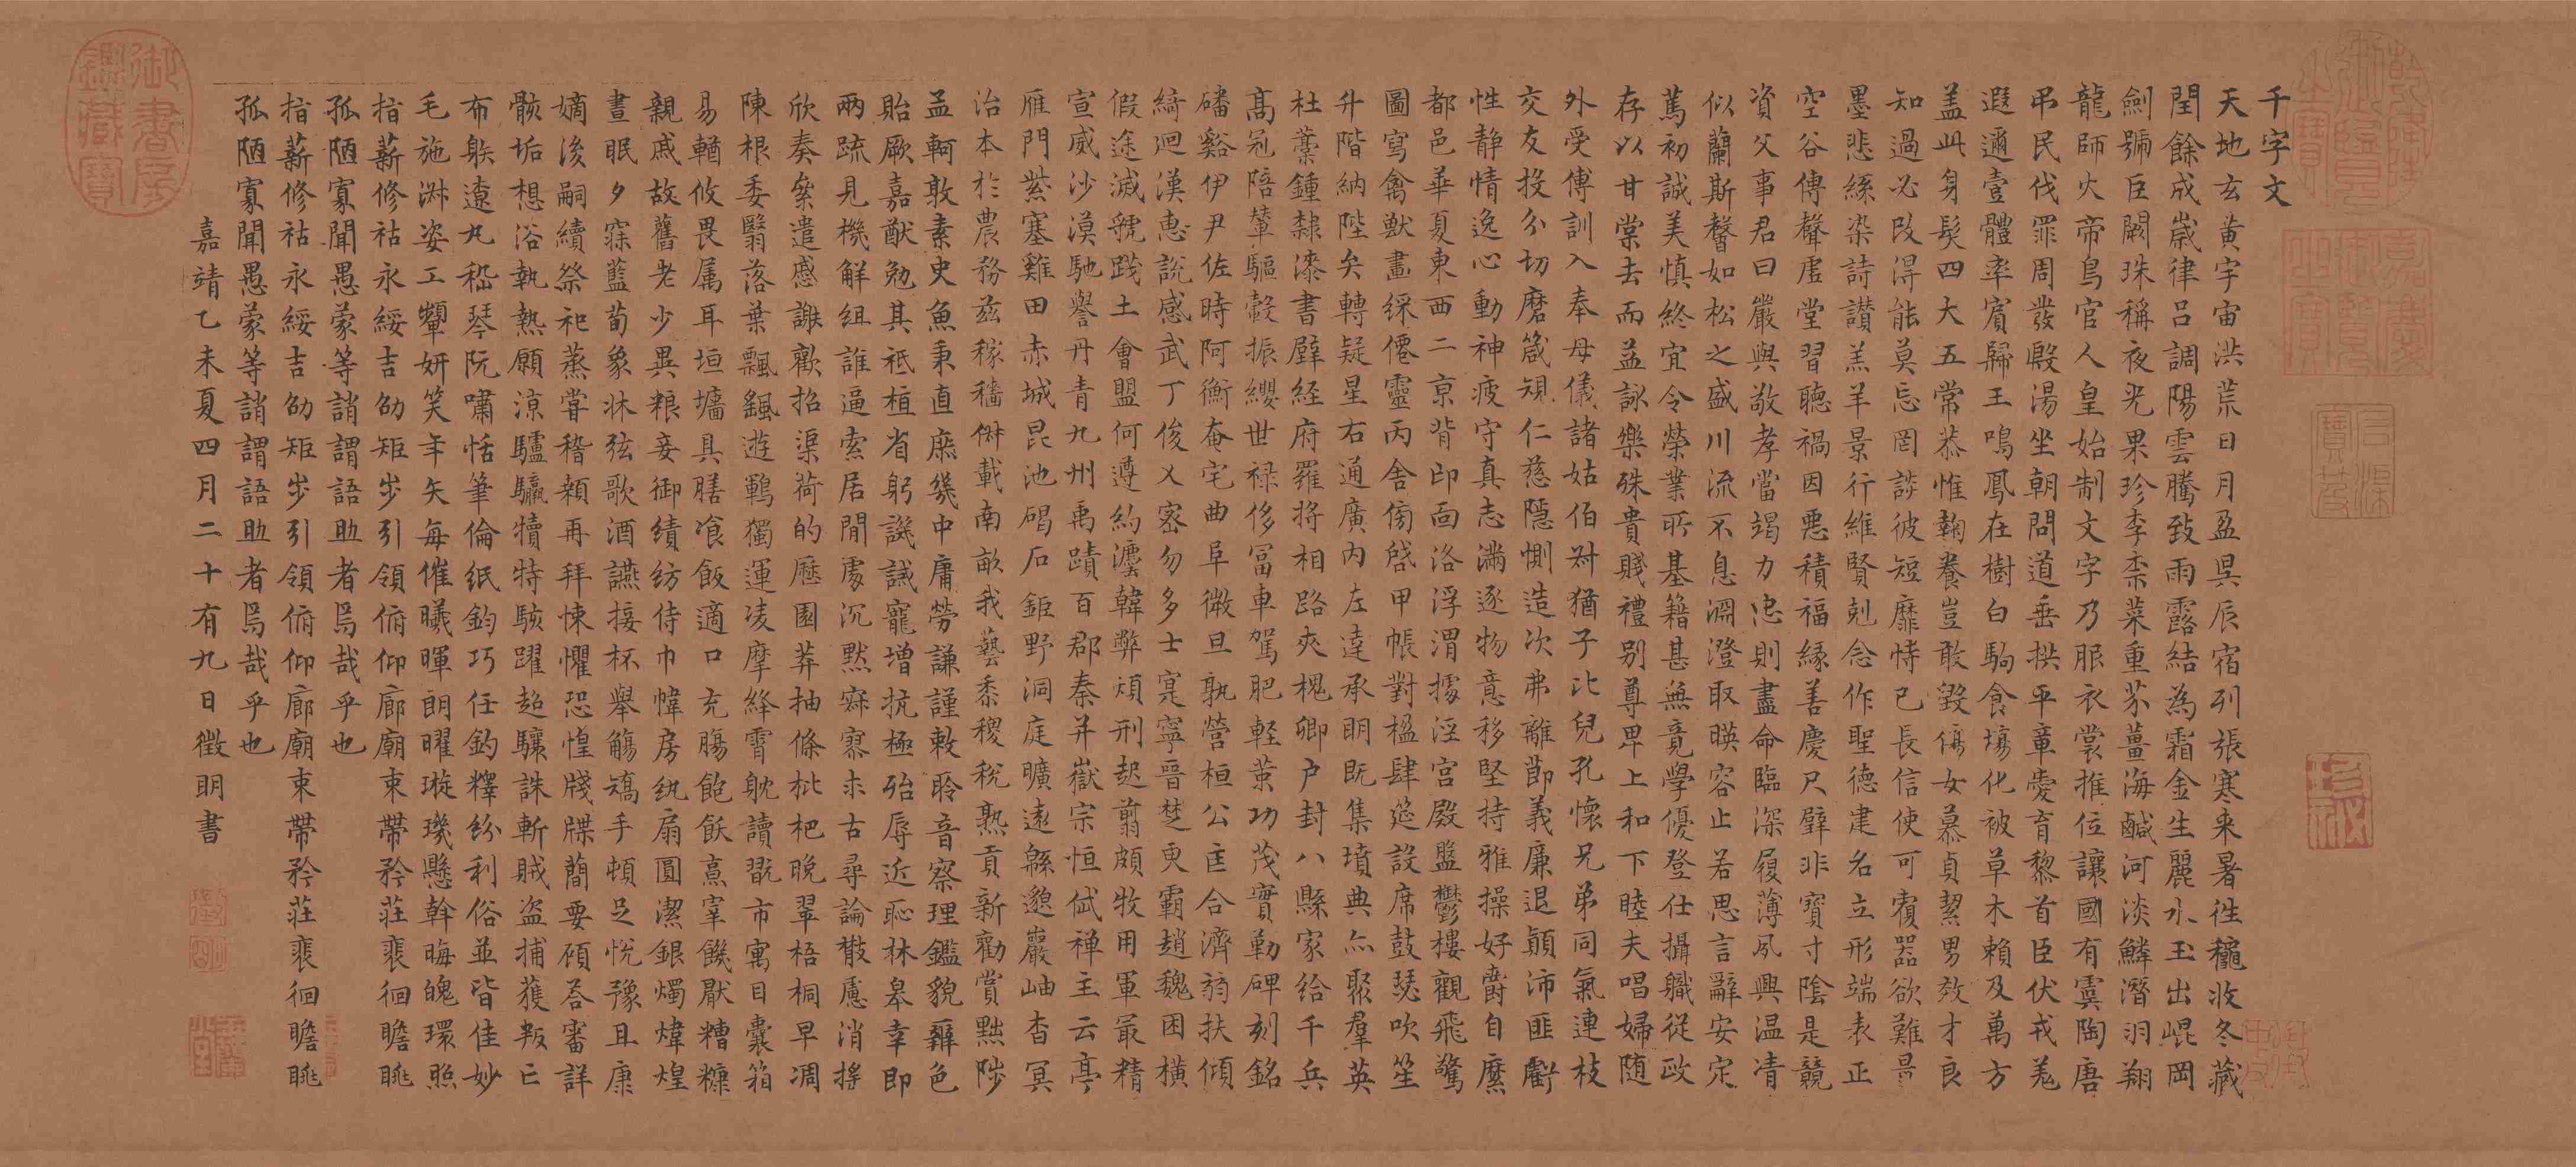 千字文
天地玄黃宇宙洪荒日月盈昃辰宿列張寒来暑往穐收冬藏
閏餘成歲律呂調陽雲騰致雨露結為霜金生麗水玉出崐岡
劍號巨闕珠稱夜光果珍李柰菜重芥薑海鹹河淡鱗潛羽翔
龍師火帝鳥官人皇始制文字乃服衣裳推位讓國有虞陶唐
弔民伐罪周發殷湯坐朝問道垂拱平章愛育黎首臣伏戎羌
遐邇壹體率賓歸王鳴鳳在樹白駒食場化被草木賴及萬方
盖此身髮四大五常恭惟鞠養豈敢毀傷女慕貞絜男效才良
知過必改得能莫忘罔談彼短靡恃己長信使可覆器欲難量
墨悲絲染詩讚羔羊景行維賢剋念作聖德建名立形端表正
空谷傳聲虛堂習聽禍因惡積福緣善慶尺璧非寶寸陰是競
資父事君曰嚴與敬孝當竭力忠則盡命臨深履薄夙興温凊
似蘭斯馨如松之盛川流不息淵澄取暎容止若思言辭安定
篤初誠美慎終宜令榮業所基籍甚無竟學優登仕攝職從政
存以甘棠去而益詠樂殊貴賤禮别尊卑上和下睦夫唱婦随
外受傅訓入奉母儀諸姑伯叔猶子比兒孔懷兄弟同氣連枝
交友投分切磨箴規仁慈隱惻造次弗離節義廉退顛沛匪虧
性静情逸心動神疲守真志滿逐物意移堅持雅操好爵自縻
都邑華夏東西二京背邙面洛浮渭據涇宮殿盤鬱樓觀飛驚
圖寫禽獸畫綵僊靈丙舍傍啓甲帳對楹肆筵設席鼓瑟吹笙
升階納陛弁轉疑星右通廣內左達承明既集墳典亦聚羣英
杜藁鍾隸漆書壁経府羅將相路夾槐卿户封八縣家給千兵
髙冠陪輦驅轂振纓世禄侈富車駕肥軽策功茂實勒碑刻銘
磻谿伊尹佐時阿衡奄宅曲阜微旦孰營桓公匡合濟弱扶傾
綺迴漢惠說感武丁俊乂密勿多士寔寧晉楚更霸趙魏困橫
假途滅虢踐土會盟何遵約灋韓弊煩刑起翦頗牧用軍最精
宣威沙漠馳譽丹青九州禹蹟百郡秦并嶽宗恒岱禅主云亭
雁門紫塞雞田赤城昆池碣石鉅野洞庭曠遠緜邈巖岫杳冥
治本於農務茲稼穡俶載南畝我藝黍稷稅熟貢新勸賞黜陟
孟軻敦素史魚秉直庶幾中庸勞謙謹敕聆音察理鑑貌辨色
貽厥嘉猷勉其祗植省躬譏誡寵增抗極殆辱近恥林皋幸即
兩疏見機解組誰逼索居閒處沉默寂寥求古尋論散慮消搖
欣奏累遣慼謝歡招渠荷的歷園莽抽條枇杷晚翠梧桐早凋
陳根委翳落葉飄颻遊鵾獨運凌摩絳霄耽讀翫市寓目囊箱
易輶攸畏属耳垣墻具膳飡飯適口充腸飽飫烹宰饑厭糟糠
親戚故舊老少異粮妾御績紡侍巾帷房紈扇圓潔銀燭煒煌
晝眠夕寐藍筍象牀弦歌酒讌接杯舉觴矯手頓足悅豫且康
嫡後嗣續祭祀蒸嘗稽顙再拜悚懼恐惶牋牒簡要顧答審詳
骸垢想浴執熱願涼驢騾犢特駭躍超驤誅斬賊盗捕獲叛亡
布射遼丸嵇琴阮嘯恬筆倫紙鈞巧任釣釋紛利俗並皆佳妙
毛施淑姿工顰妍笑年矢每催曦暉朗曜璇璣懸斡晦魄環照
指薪修祜永綏吉劭矩步引領俯仰廊廟束帶矜莊裴徊瞻眺
孤陋寡聞愚蒙等誚謂語助者焉哉乎也
指薪修祜永綏吉劭矩步引領俯仰廊廟束帶矜莊裴徊瞻眺
孤陋寡聞愚蒙等誚謂語助者焉哉乎也
嘉靖乙未夏四月二十有九日徵明書
御書房鑑藏寶